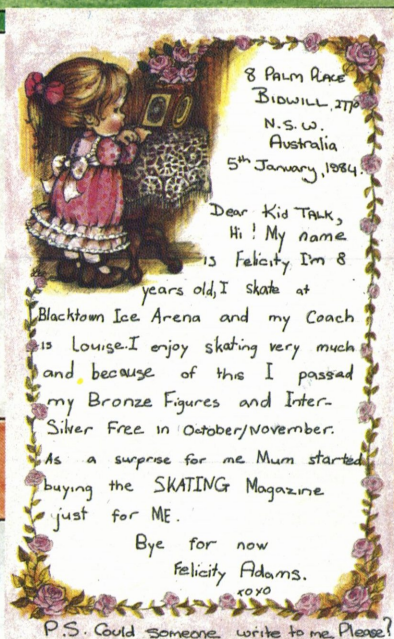 8 Palm Place
Bidwill, 2770
N.S.W.
Australia
5th January, 1984.
Dear Kid Talk,
Hi! My name
is Felicity I'm 8
years old, I skate at
Blacktown Ice Arena and my Coach
is Louise. I enjoy skating very much
and because of this I passed
my Bronze Figures and Inter-
Silver Free in October/November.
As a surprise for me Mum started
buying the SKATING Magazine
just for ME.
Bye for now
Felicity Adams.
xoxo
P.S. Could someone write to me Please?